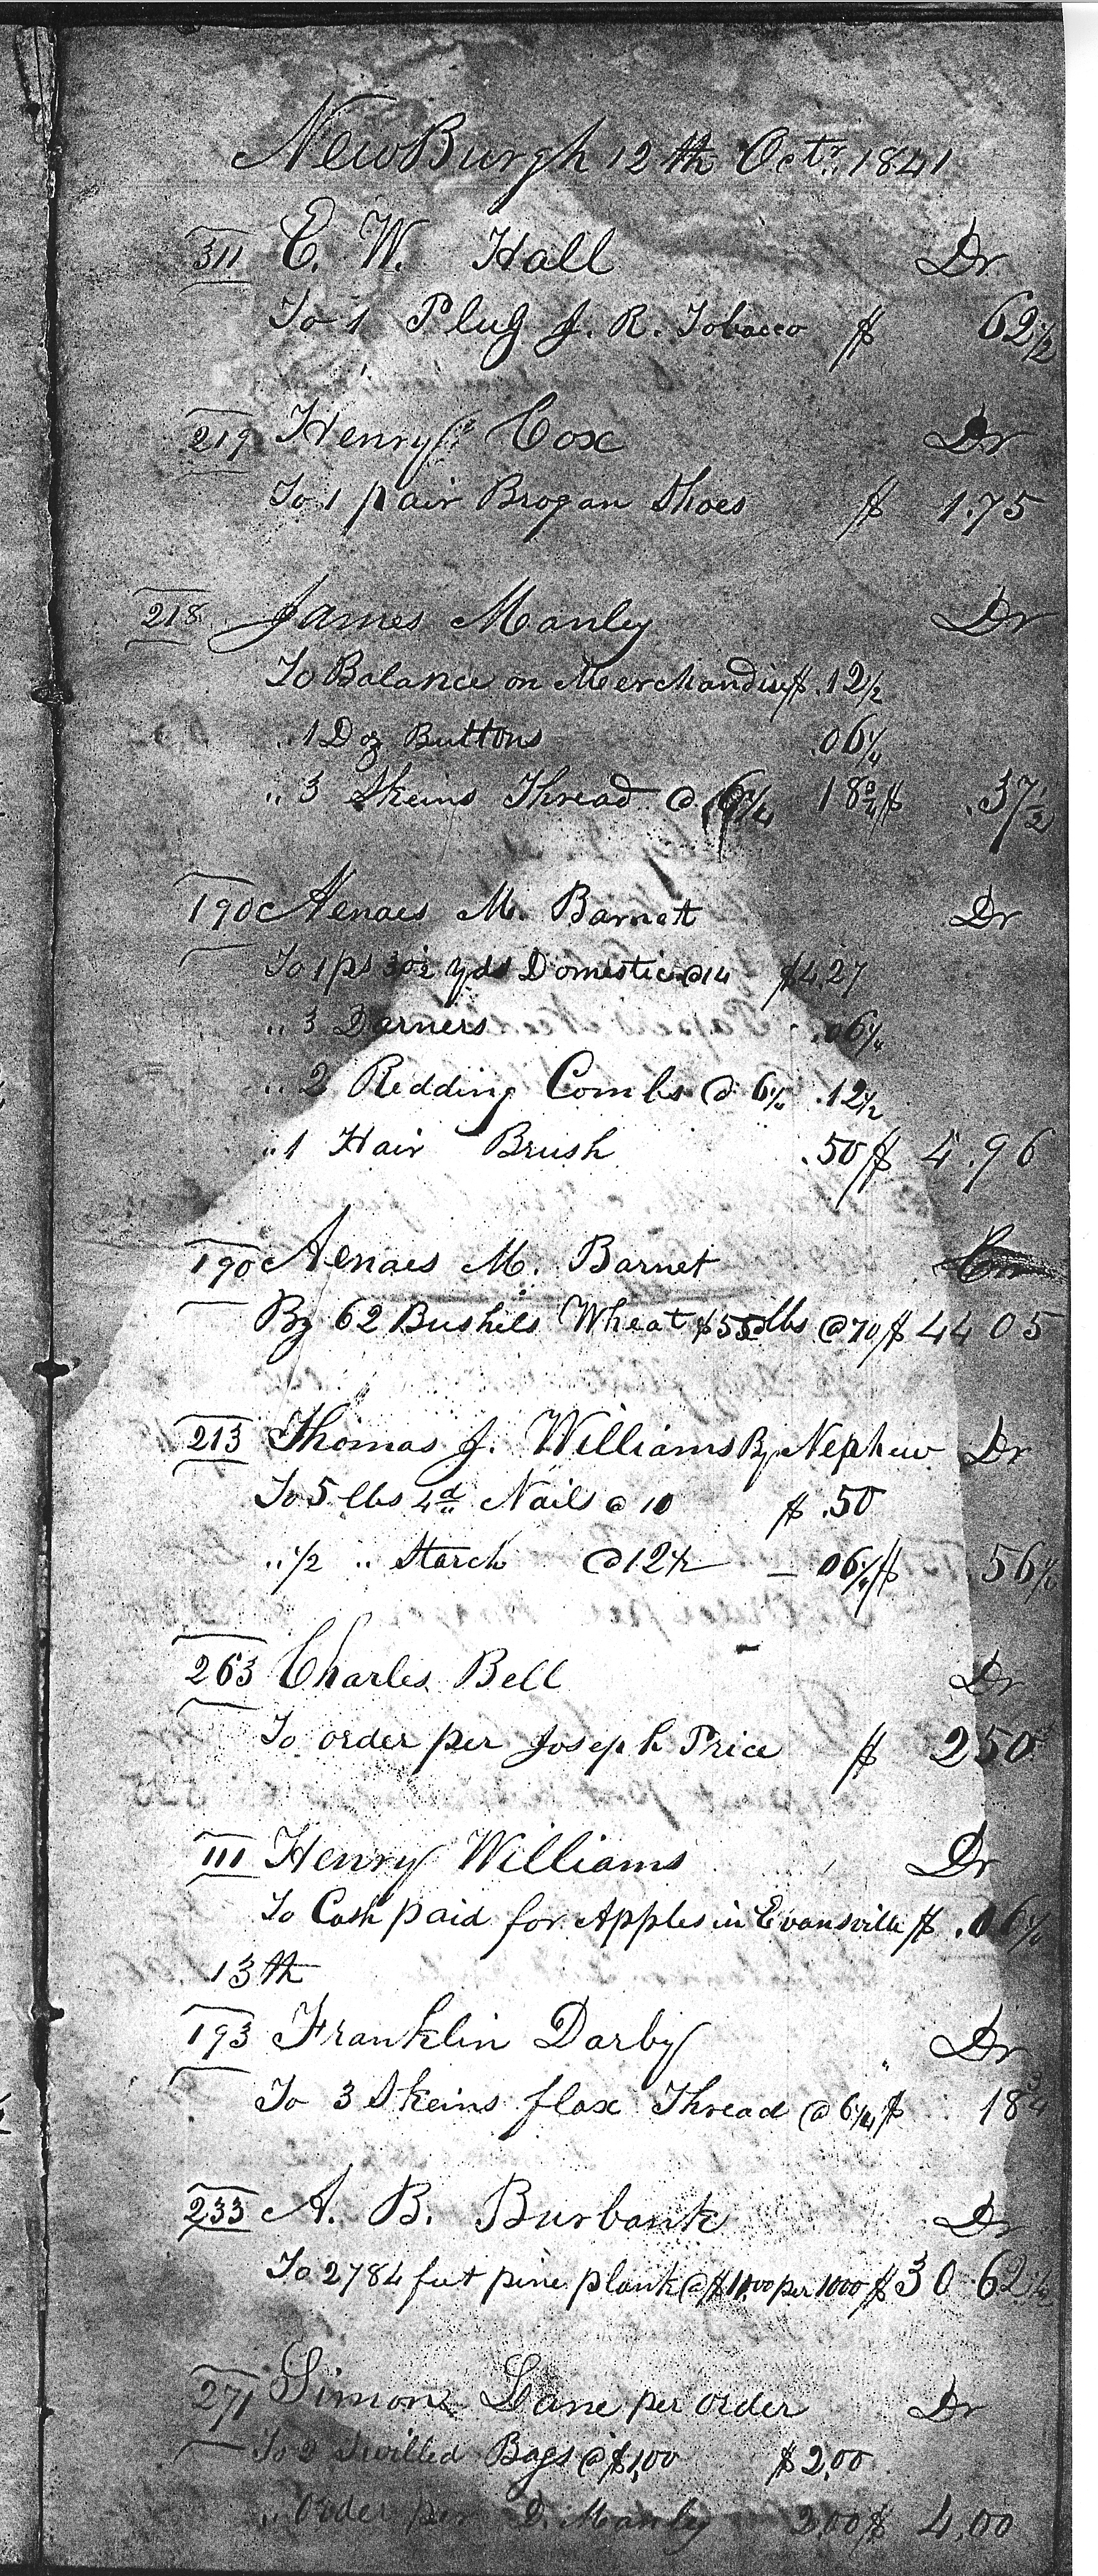 NewBurgh 12th Octr. 1841
311 E. W. Hall Dr
To 1 Plug J. R. Tobacco $ 62½
219 Henry Cox Dr
To 1 pair Brogan Shoes $ 1.75
218 James Manley Dr
To Balance on Merchandise $ .12½
" 1 Doz Buttons .06¼
" 3 Skeins Thread @ 6¼ 18¾ $ .37½
190 Aenaes M. Barnett Dr
To 1 ps 30½ yds Domestic @ 14 $4.27
" 3 Darners .06¼
" 2 Redding Combs @ 6¼ .12½
" 1 Hair Brush .50 $ 4.96
190 Aenaes M. Barnet
By 62 Bushels Wheat lbs @ 70 $ 44 05
213 Thomas J. Williams By Nephew Dr
To 5 lbs 4d Nails @ 10 $ .50
" ½ " Starch @ 12½ – 06¼ $ 56¼
263 Charles Bell Dr
To order per Joseph Price $ 250
111 Henry Williams Dr
To Cash paid for Apples in Evansville $ .06¼
13th
193 Franklin Darby Dr
To 3 Skeins flax Thread @ 6¼ $ 18¾
233 A. B. Burbank Dr
To 2784 feet pine plank @ $11,00 per 1000 $ 30 62½
271 Simon Lane per order Dr
To 2 Twilled Bags @ $1,00 $2,00
" Order per D. Manley 2,00 $ 4,00